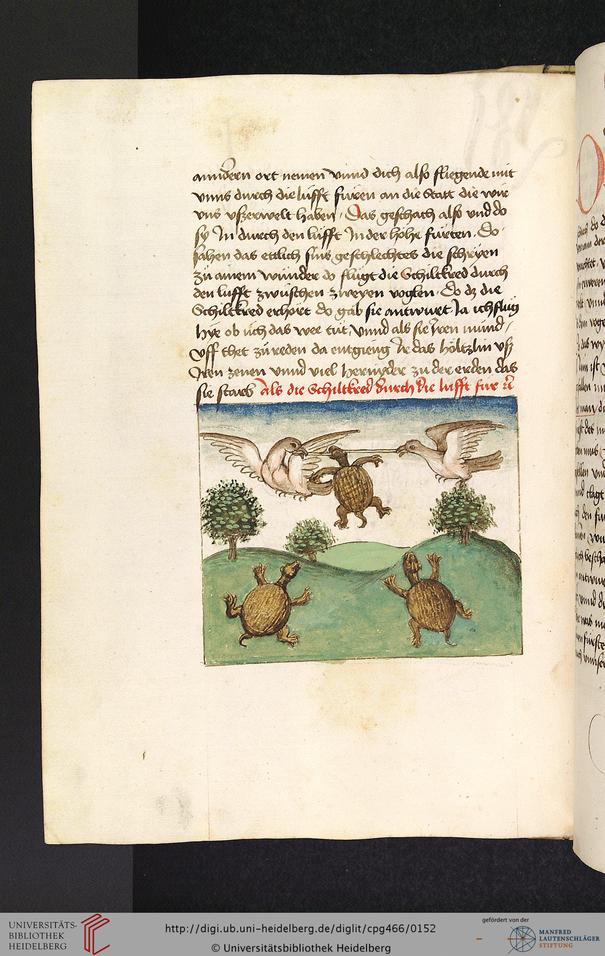 anndern ort nemen vnnd dich also fliegende mit
vnns durch die lufft furen an die Statt die wir
vns vszerwelt haben. Das geschach also vnd do
sy In durch den lufft In der hohe furten. Do
sahen das ettlich sins geschlechtes die schryen
zu ainem wunder do flúgt die Schiltkred durch
den lufft zwüschen zweyen voglen. Do dz die
Schiltkred erhört do gab sie antwurt Ja ich flúg
hye ob úch das wee tút vnnd als sie Iren mund
vff thet zú reden da entgieng Ir das höltzlin vsz
Iren zenen vnnd viel hernyder zu der erden das
sie starb Als die Schiltkred durch die lufft fur
UNIVERSITÄTS-
BIBLIOTHEK
HEIDELBERG
http://digi.ub.uni-heidelberg.de/diglit/cpg466/0152
© Universitätsbibliothek Heidelberg
gefördert von der
MANFRED
LAUTENSCHLÄGER
STIFTUNG